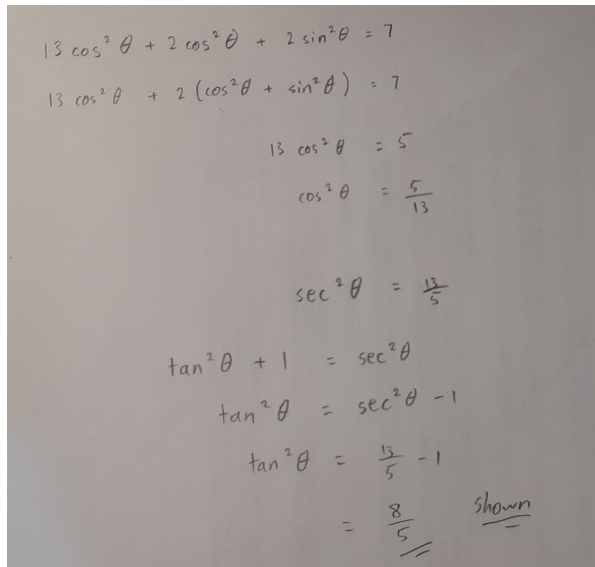 13 cos² θ + 2 cos² θ + 2 sin² θ = 7
13 cos² θ + 2 (cos² θ + sin² θ) = 7
13 cos² θ = 5
cos² θ = 5/13
sec² θ = 13/5
tan² θ + 1 = sec² θ
tan² θ = sec² θ - 1
tan² θ = 13/5 - 1
= 8/5 shown